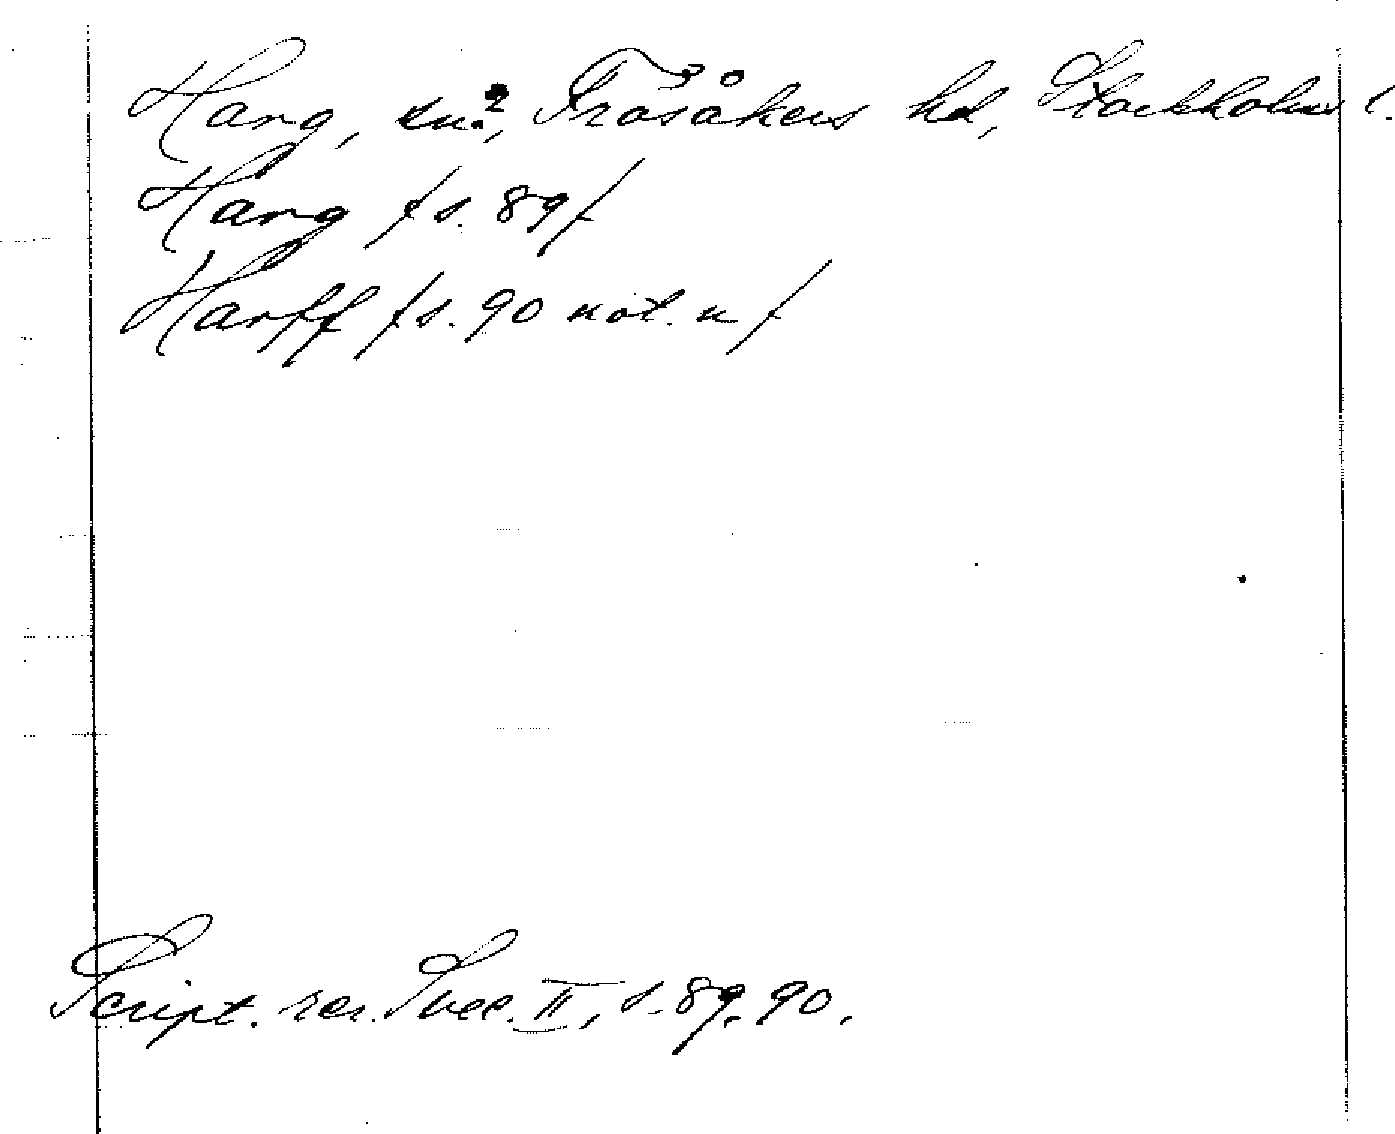 Harg, sn?, Frösåkers hd, Stockholms l.
Harg /s. 89/
Harff /s. 90 not. n/
Script. rer. Svec. II, s. 89, 90.